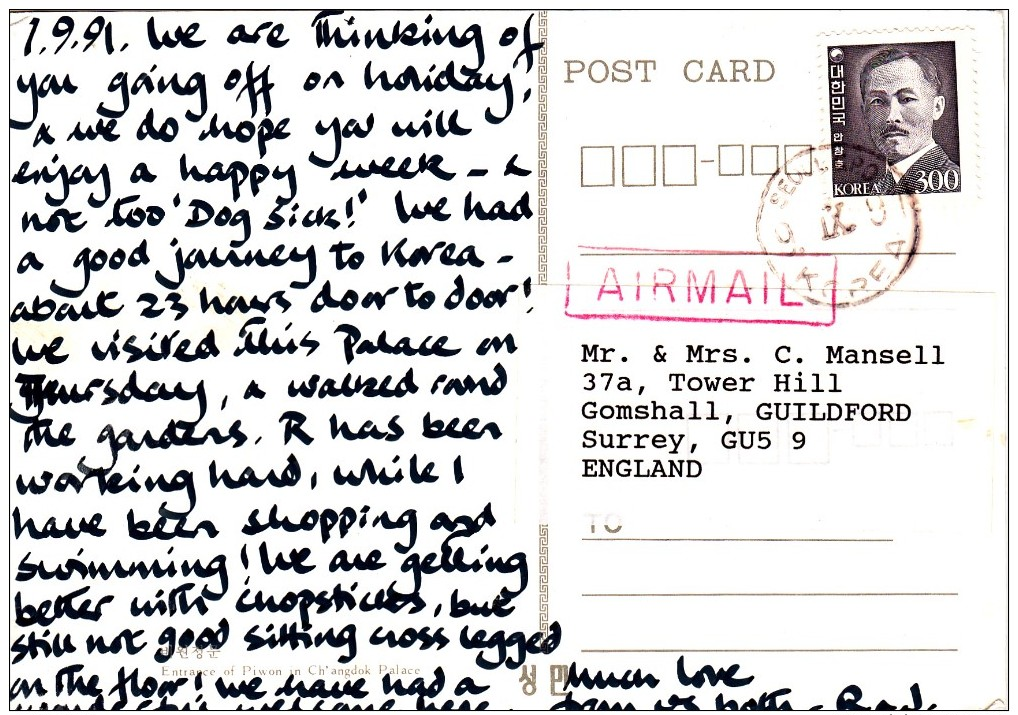 1.9.91. We are thinking of
you going off on holiday,
& we do hope you will
enjoy a happy week - &
not too 'Dog Sick!' We had
a good journey to Korea -
about 23 hours door to door!
We visited this Palace on
Thursday, & walked round
the gardens. R has been
working hard, while I
have been shopping and
swimming! We are getting
better with chopsticks, but
still not good sitting cross legged
on the floor! We have had a
wonderful welcome here.
much love
from us both -
비원정문
Entrance of Piwon in Ch'angdok Palace
POST CARD
대한민국
안창호
KOREA 300
SEOUL
IX
KOREA
AIRMAIL
Mr. & Mrs. C. Mansell
37a, Tower Hill
Gomshall, GUILDFORD
Surrey, GU5 9
ENGLAND
TO